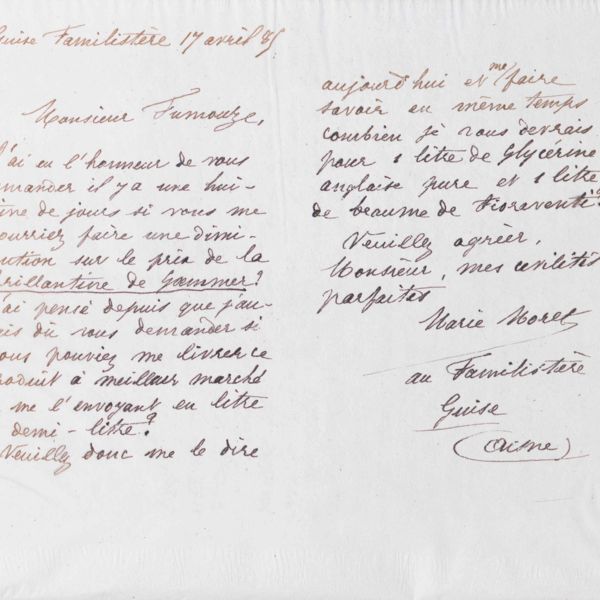 Guise Familistère 17 avril 85
Monsieur Fumouze,
J'ai eu l'honneur de vous
mander il y a une hui-
ine de jours si vous me
ourriez faire une dimi-
ution sur le prix de la
brillantine de Gœmmer?
'ai pensé depuis que j'au-
ais dû vous demander si
ous pouviez me livrer ce
roduit à meilleur marché
me l'envoyant en litre
demi-litre?
Veuillez donc me le dire
aujourd'hui et me faire
savoir en même temps
combien je vous devrais
pour 1 litre de Glycérine
anglaise pure et 1 litre
de beaume de Fioraventi?
Veuillez agréer,
Monsieur, mes civilités
parfaites
Marie Moret
au Familistère
Guise
(Aisne)